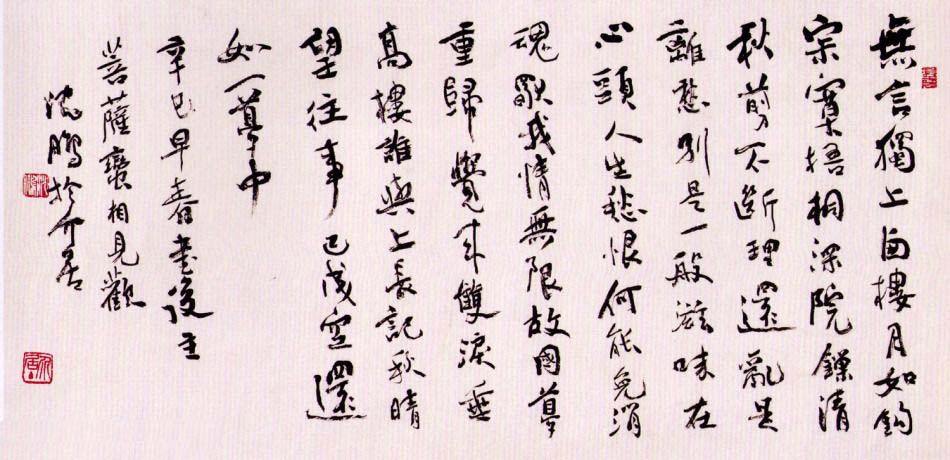 無言獨上西樓月如鉤
寂寞梧桐深院鎖清
秋剪不斷理還亂是
離愁別是一般滋味在
心頭人生愁恨何能免消
魂獨我情無限故國夢
重歸覺來雙淚垂
高樓誰與上長記秋晴
望往事已成空還
如一夢中
辛巳早春書後主
菩薩蠻相見歡
沈鵬於介居